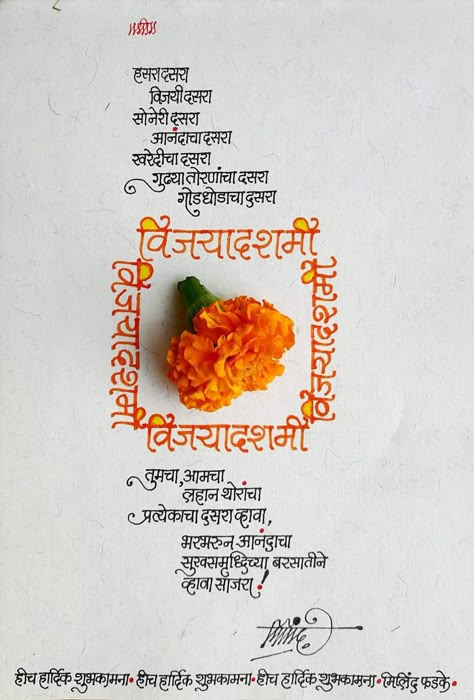 हसरा दसरा
विजयी दसरा
सोनेरी दसरा
आनंदाचा दसरा
खरेदीचा दसरा
गुढया तोरणांचा दसरा
गोडधोडाचा दुसरा
विजयादशमी
विजयादशमी
विजयादशमी
विजयादशमी
तुमचा, आमचा
लहान थोरांचा
प्रत्येकाचा दसरा व्हावा,
भरभरुन आनंदाचा
सुखसमृध्दिच्या बरसातीने
व्हावा साजरा!
मिलिंद
हीच हार्दिक शुभकामना • हीच हार्दिक शुभकामना • हीच हार्दिक शुभकामना • मिलिंद फडके •